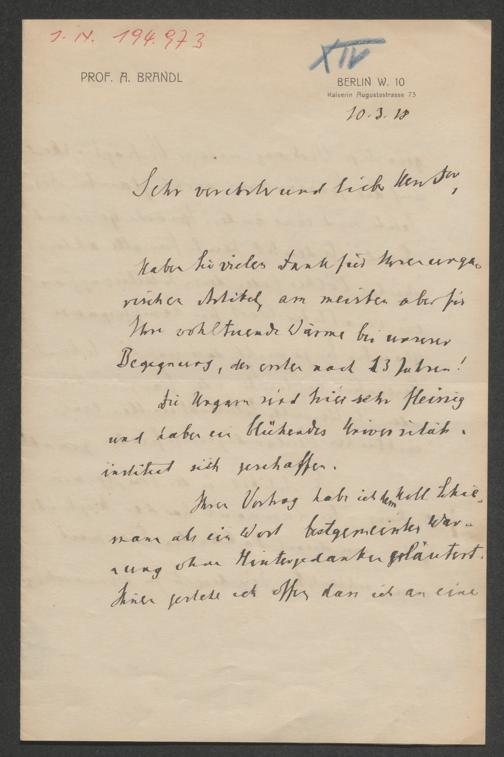 I. N. 194.973
XIV
PROF. A. BRANDL
BERLIN W. 10
Kaiserin Augustastrasse 73
10. 3. 18
Sehr verehrter und lieber Herr
Haben Sie vielen Dank für Ihren unga-
rischen Artikel, am meisten aber für
Ihre wohltuende Wärme bei unserer
Begegnung, der ersten nach 23 Jahren!
Die Ungarn sind hier sehr fleissig
und haben ein blühendes Universitäts-
institut sich geschaffen.
Ihren Vortrag habe ich dem Koll.
mann als ein Wort bestgemeinter War-
nung ohne Hintergedanken erläutert.
Ihnen gestehe ich offen, dass ich an eine